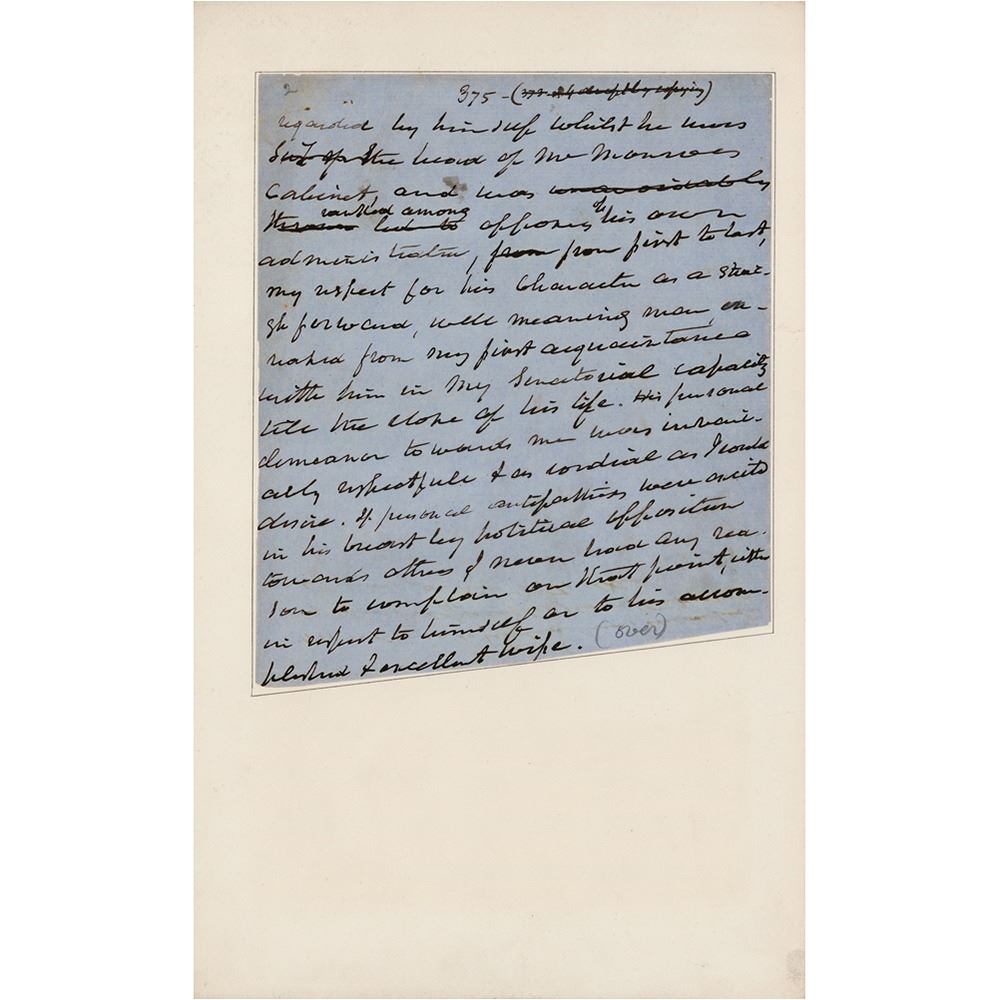 2
375 - (373 & 4 dropt by copying)
regarded by himself whilst he was
at the head of Mr Monroes
Cabinet, and was unavoidably
ranked among
led to opposing to his own
administration, from from first to last,
my respect for his Character as a strai-
gh forward, well meaning man, in-
creased from my first acquaintance
with him in my Senatorial capacity
till the close of his life. His personal
demeanor towards me was invari-
ably respectfull & as cordial as I could
desire. If personal antipathies were excited
in his breast by political opposition
towards others I never had any rea-
son to complain on that point, either
in respect to himself or to his accom-
plished & excellent wife. (over)